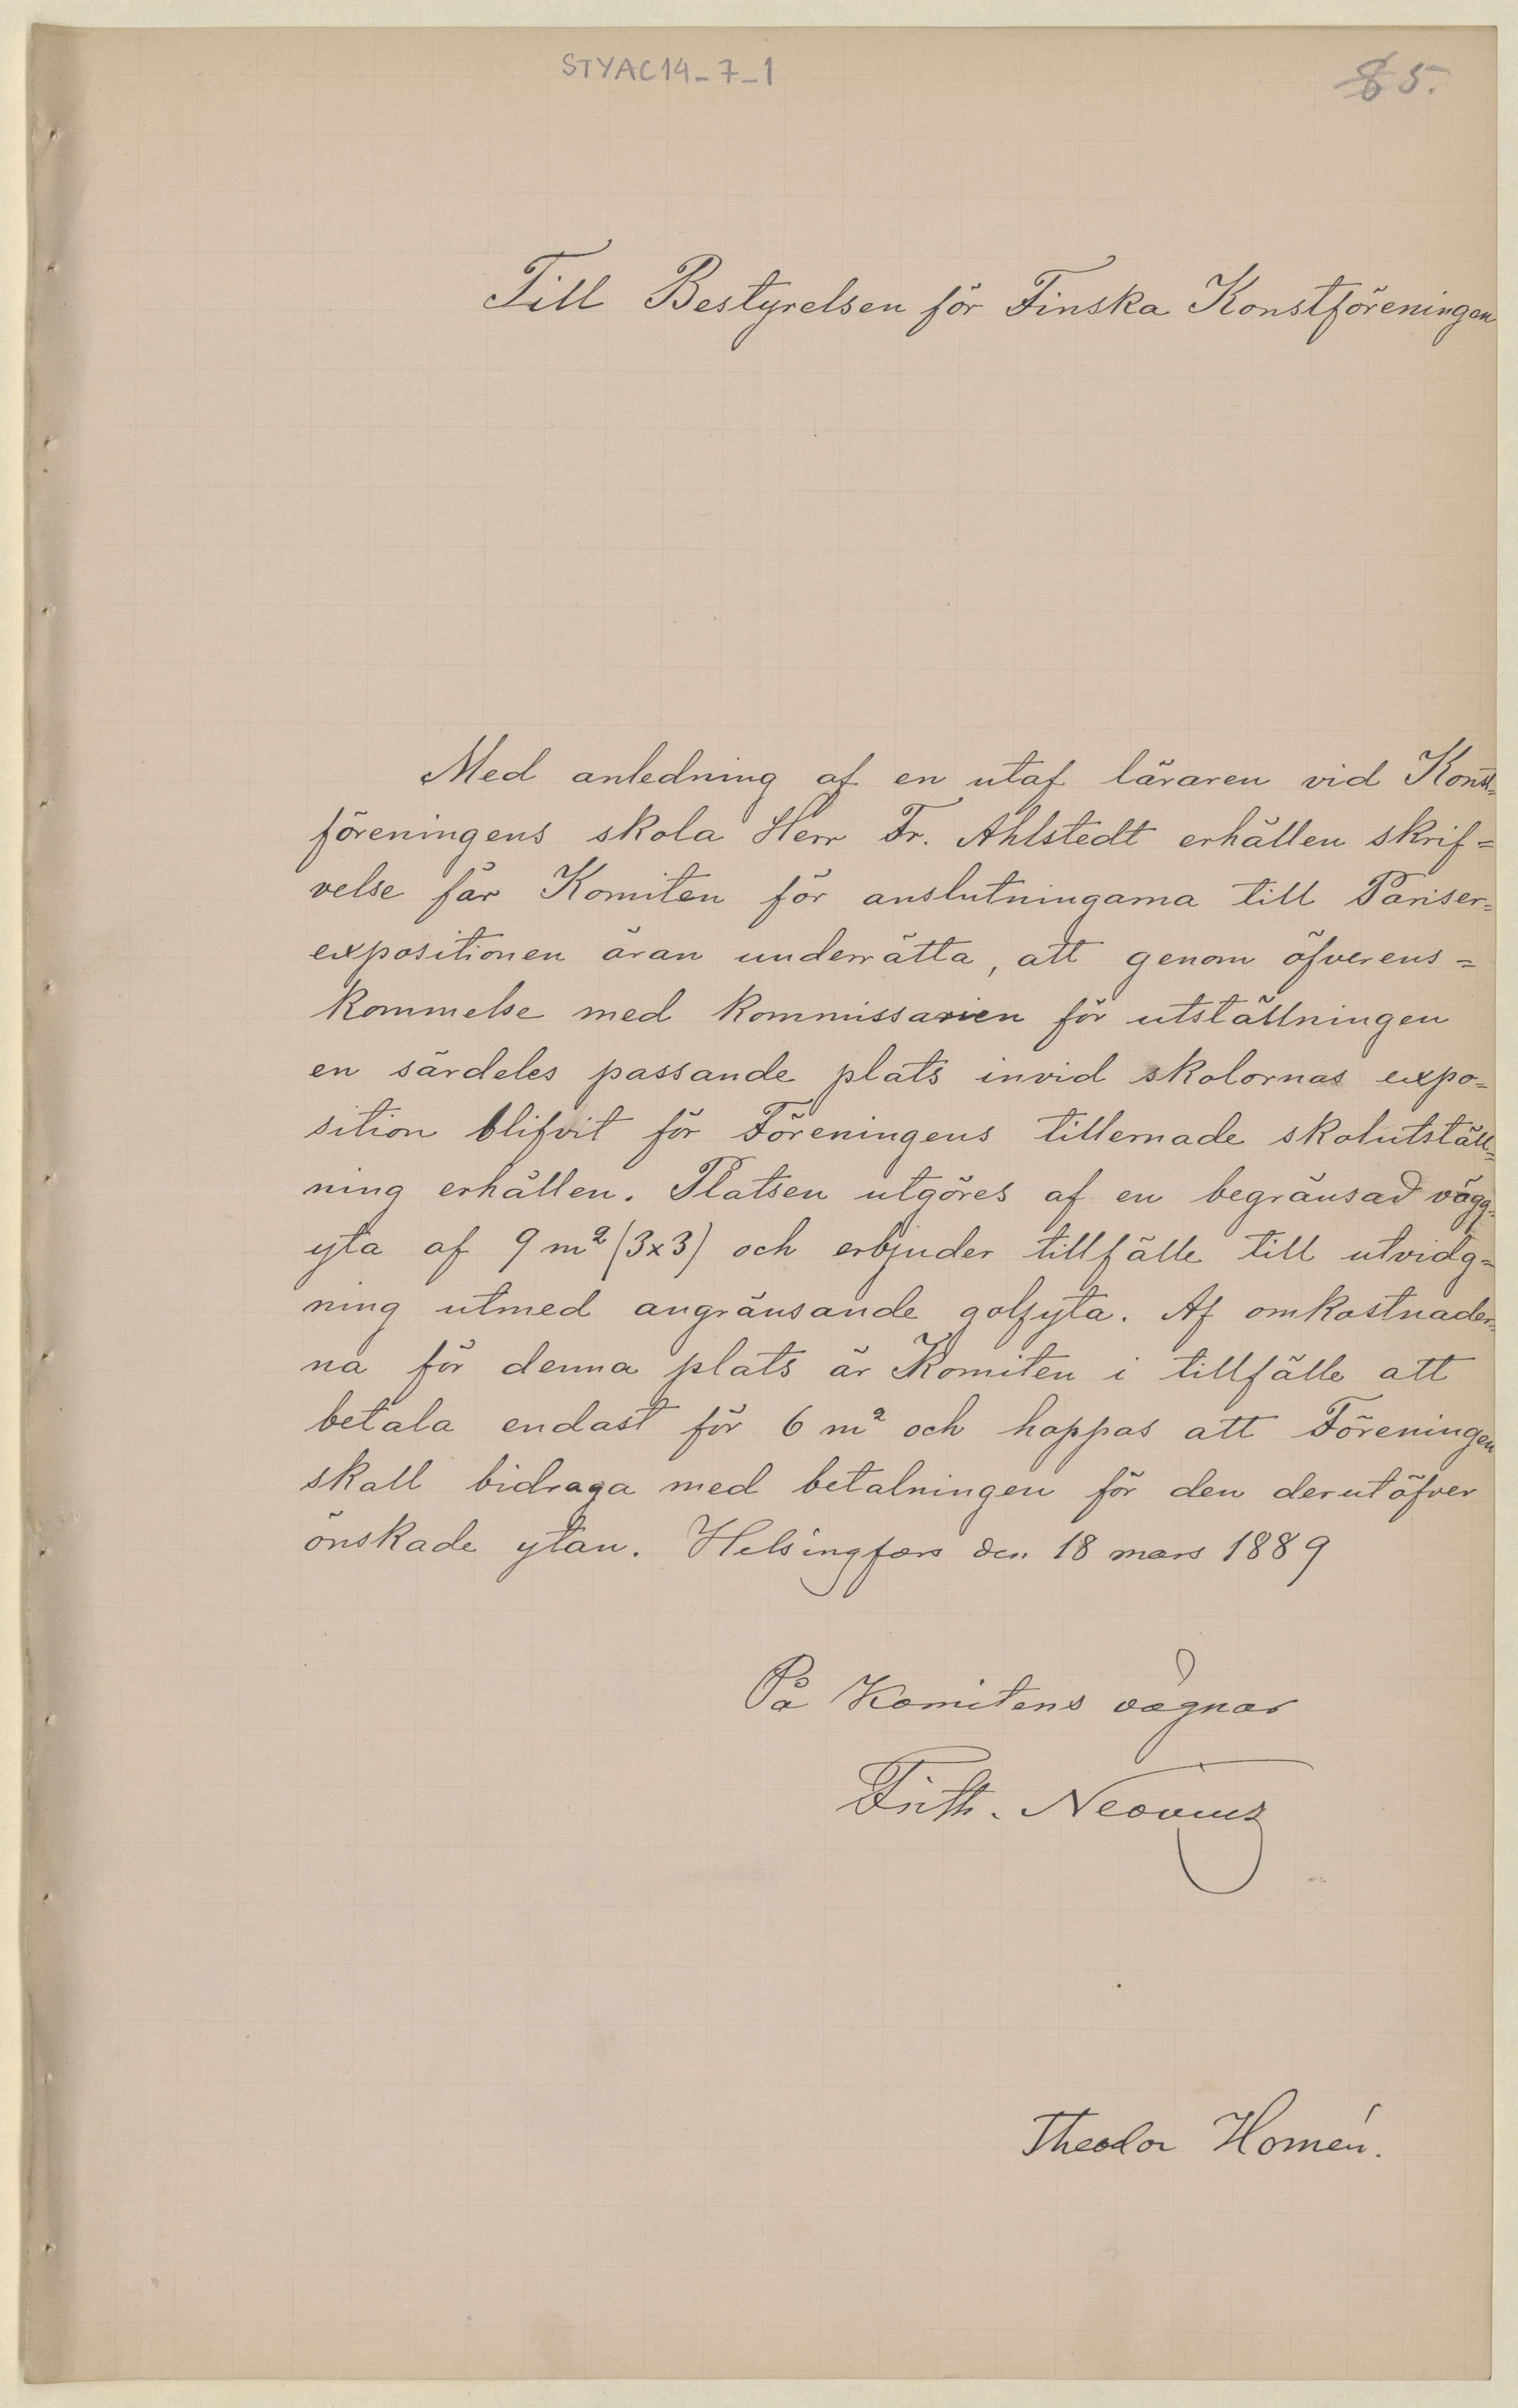 STYAC14-7-1
5.
Till Bestyrelsen för Finska Konstföreningen
Med anledning af en utaf läraren vid Konst-
föreningens skola Herr Fr. Ahlstedt erhållen skrif=
velse får Komiten för anslutningarna till Pariser=
expositionen äran underrätta, att genom öfverens=
kommelse med kommissarien för utställningen
en särdeles passande plats invid skolornas expo=
sition blifvit för Föreningens tillernade skolutställ=
ning erhållen. Platsen utgöres af en begränsad vägg=
yta af 9 m² (3x3) och erbjuder tillfälle till utvidg=
ning utmed angränsande golfyta. Af omkostnader=
na för denna plats är Komiten i tillfälle att
betala endast för 6 m² och hoppas att Föreningen
skall bidraga med betalningen för den derutöfver
önskade ytan. Helsingfors den 18 mars 1889
På Komitens vägnar
Frith. Neovius
Theodor Homén.